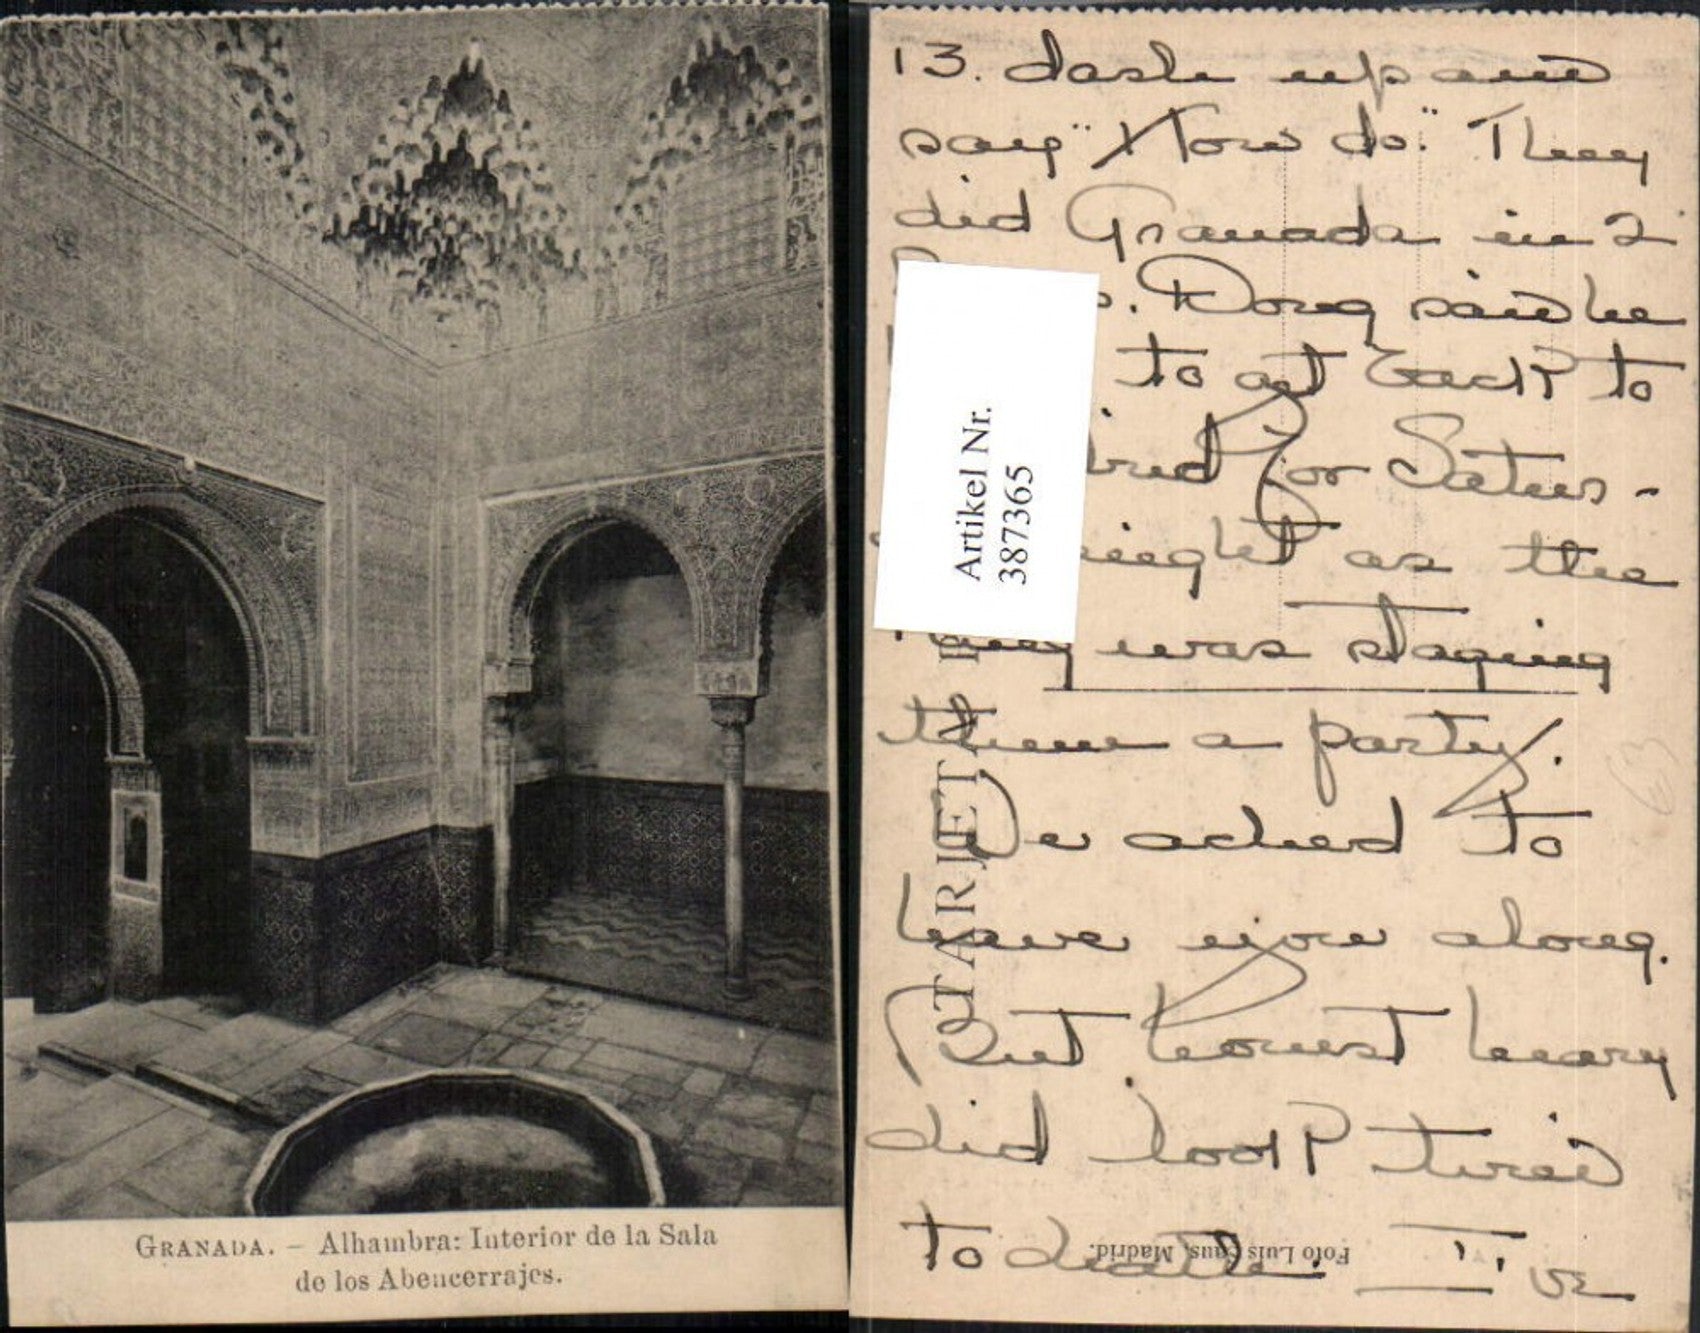 GRANADA. – Alhambra: Interior de la Sala
de los Abencerrajes.
13. dash up and
say "How do." They
did Granada in 2
Doug said he
to get back to
for Satur-
night as the
was staging
them a party.
We asked to
leave you along.
But honest Mary
did look tired
to death. I've
Artikel Nr.
387365
TARJETA
Foto Luis Madrid.